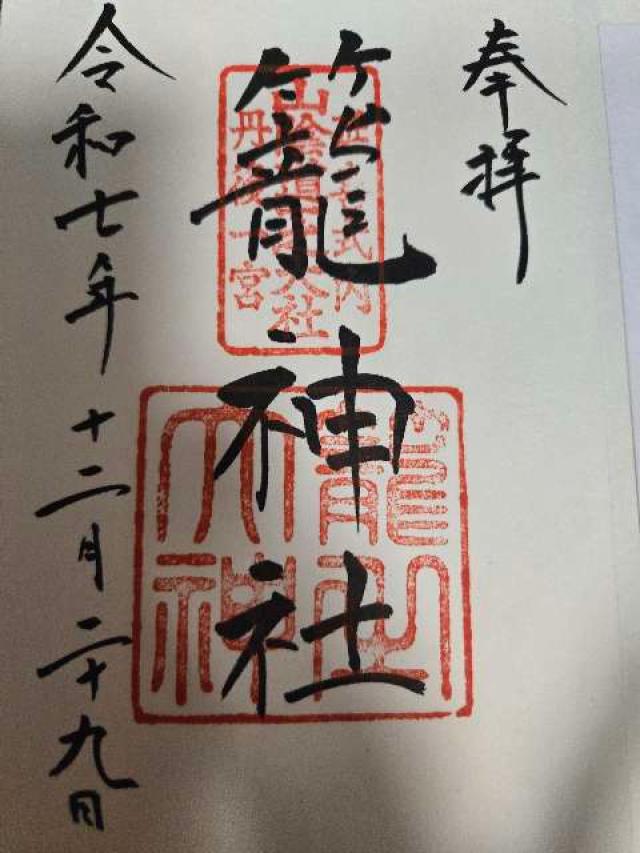 奉拝
籠神社
延喜式内
山陰道一之大社
丹後一宮
籠之
大神
令和七年十二月二十九日